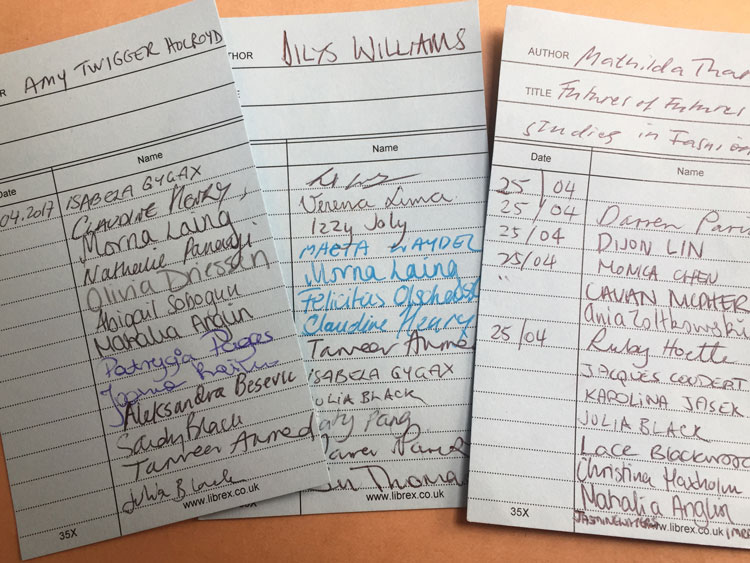 AMY TWIGGER HOLROYD
Name
Date
04.2017 ISABELA GYGAX
CLAUDINE HENRY
Morna Laing
Nathalie
Olivia Driessen
Abigail
Mahalia Anglin
Patrycja
Aleksandra Besevic
Sandy Black
Tanveer Ahmed
Julia Black
www.librex.co.uk
35X
THOR DILYS WILLIAMS
Name
Verena Lima
Izzy Joly
Morna Laing
Felicitas
Claudine Henry
Tanveer Ahme
ISABELA GYGAX
JULIA BLACK
Pang
Thomas
www.librex.co.uk
AUTHOR Mathilda Tha
TITLE Futures of Futures
studies in Fashion
Date Name
25/04
25/04 Darren
25/04 DIJON LIN
25/04 MONICA CHEN
" CAVAN MCPHER
Ania Zoltkowski
25/04 Ruby Hoette
JACQUES
KAROLINA JASEK
JULIA BLACK
Lace Blackwood
Christina
Mahalia Anglin
www.librex.co.uk
35X